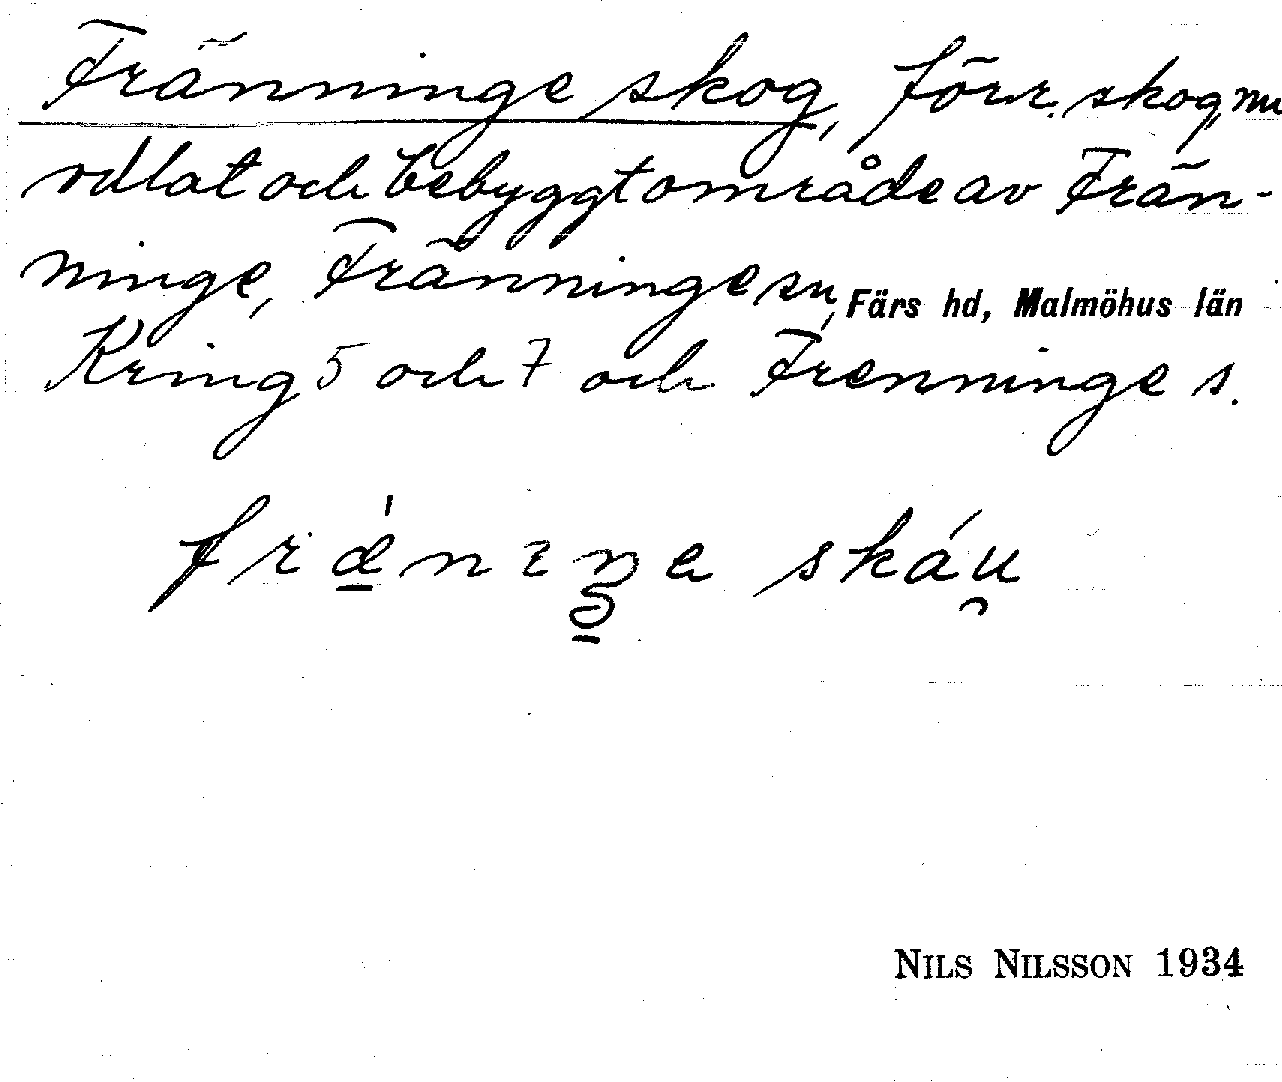 Fränninge skog, förr. skog, nu
odlat och bebyggt område av Frän-
ninge, Fränninge sn, Färs hd, Malmöhus län
Kring 5 och 7 och Frenninge s.
skáu̯
NILS NILSSON 1934